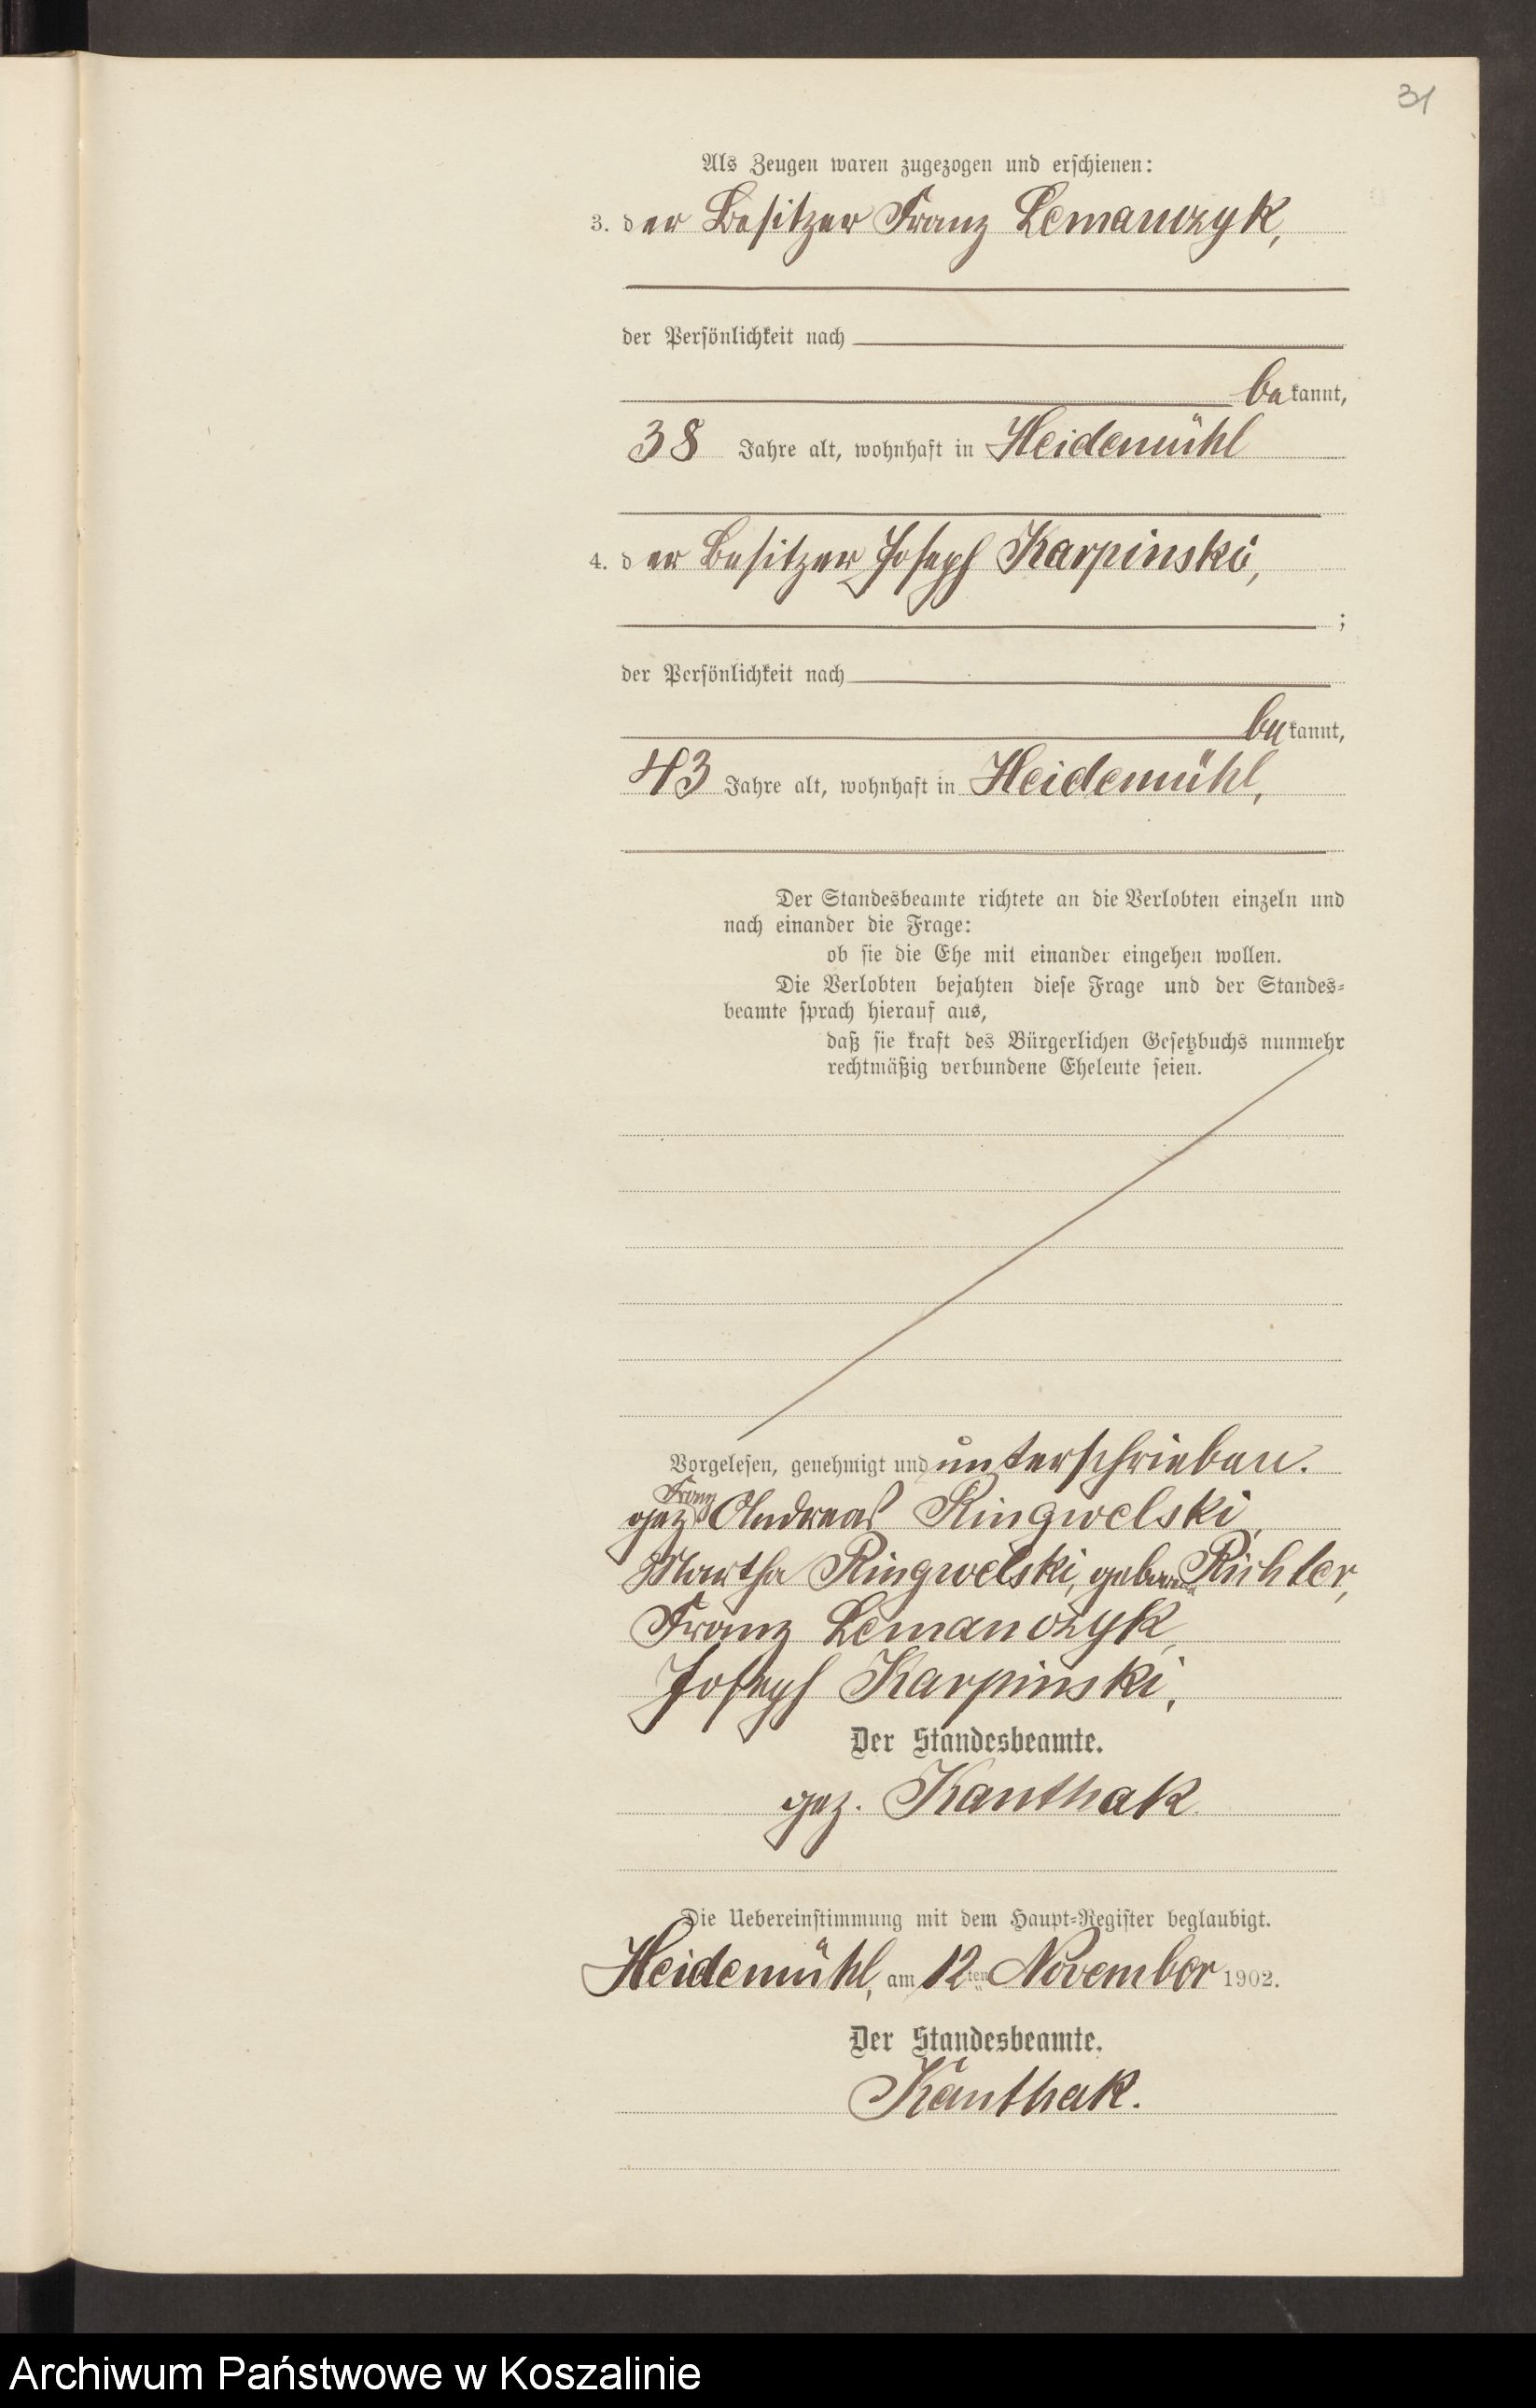 31
Als Zeugen waren zugezogen und erschienen:
3. der Besitzer Franz Lemanczyk,
der Persönlichkeit nach
bekannt,
38 Jahre alt, wohnhaft in Heidemühl
4. der Besitzer Joseph Karpinski,
;
der Persönlichkeit nach
bekannt,
43 Jahre alt, wohnhaft in Heidemühl,
Der Standesbeamte richtete an die Verlobten einzeln und
nach einander die Frage:
ob sie die Ehe mit einander eingehen wollen.
Die Verlobten bejahten diese Frage und der Standes-
beamte sprach hierauf aus,
daß sie kraft des Bürgerlichen Gesetzbuchs nunmehr
rechtmäßig verbundene Eheleute seien.
Vorgelesen, genehmigt und unterschrieben.
Franz
gez Andreas Ringwelski,
Martha Ringwelski, geborene Richter,
Franz Lemanczyk,
Joseph Karpinski,
Der Standesbeamte.
gez. Kanthak.
Die Uebereinstimmung mit dem Haupt-Register beglaubigt.
Heidemühl, am 12ten November 1902.
Der Standesbeamte.
Kanthak.
Archiwum Państwowe w Koszalinie